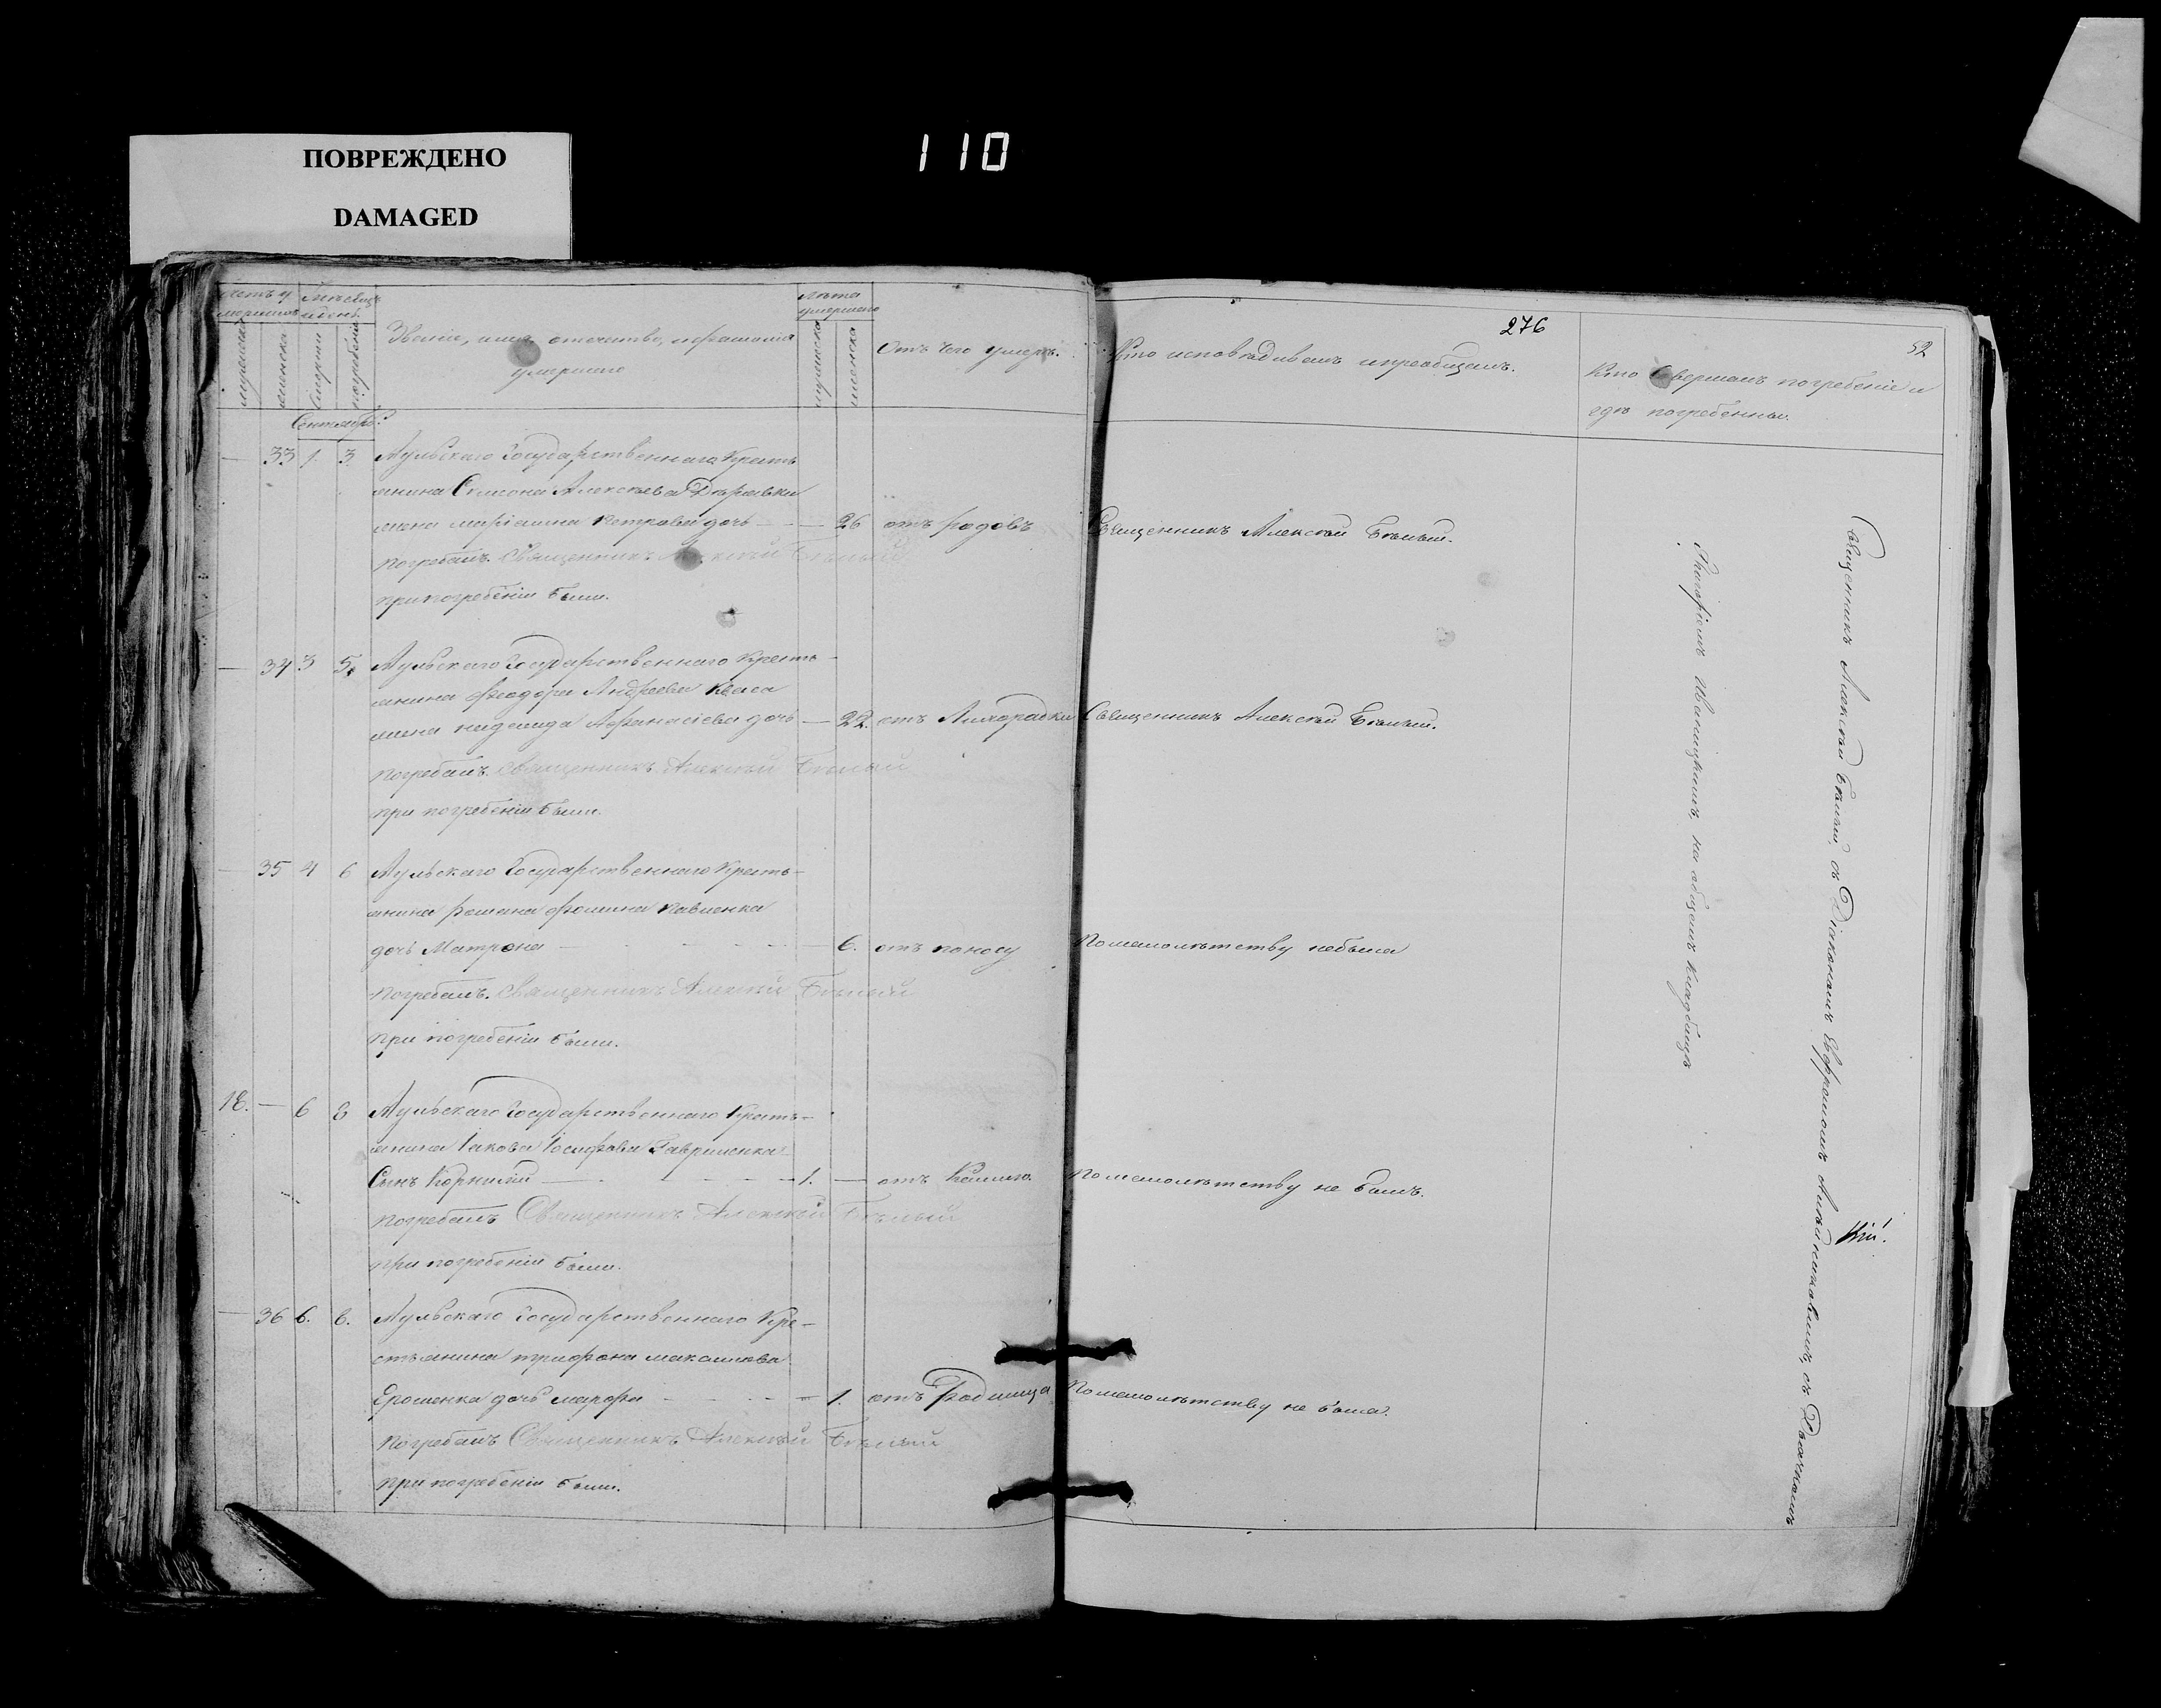 ПОВРЕЖДЕНО
DAMAGED
110
276
52
Счетъ у
мершихъ
Мѣсяцъ
и день
Званіе, имя, отечество, и фамилія
умершаго
Лѣта
умершаго
Отъ чего умеръ.
Кто исповѣдывалъ и пріобщалъ.
Кто совершалъ погребеніе и
гдѣ погребенны.
мужеска
женска
смерти
погребенія
мужеска
женска
Сентябрь
— 33 1. 3. Аульскаго Государственнаго Кресть
янина Симона Алексѣева Дѣравки
жена маріамна Петрова дочь — — 26 отъ родовъ Священникъ Алексѣй Бѣлый.
Погребалъ. Священникъ Алексѣй Бѣлый
при погребеніи были.
— 34 3 5. Аульскаго Государственнаго Кресть-
янина Ѳеодора Андреева Кваса
жена надежда Афанасіева дочь — 22. отъ Лихорадки Священникъ Алексѣй Бѣлый.
Погребалъ. Священникъ Алексѣй Бѣлый
при погребеніи были.
— 35 4 6 Аульскаго Государственнаго Кресть-
янина Романа Фомина Павленка
дочь Матрона — 6. отъ поносу По малолѣтству небыла
Погребалъ. Священникъ Алексѣй Бѣлый
при погребеніи были.
18. — 6 8 Аульскаго Государственнаго Кресть-
янина Іакова Іосифова Гавриленка
Сынъ Корнилій — 1. — отъ Кашлю По малолѣтству не былъ.
Погребалъ Священникъ Алексѣй Бѣлый
при погребеніи были.
— 36 6. 8. Аульскаго Государственнаго Кре-
стьянина трифона максимова
Ерошенка дочь марфа — 1. отъ Родимца По малолѣтству не была.
Погребалъ Священникъ Алексѣй Бѣлый
при погребеніи были.
Священникъ Алексѣй Бѣлый, съ Діакономъ Евфремомъ съ Дьячкомъ
Иваницкимъ, на общемъ кладбищѣ